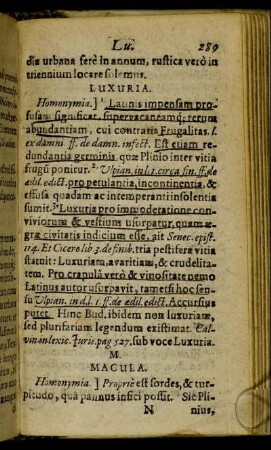 Lu. 289
dia urbana ferè in annum, rustica verò in
triennium locare solemus.
LUXURIA.
Homonymia.] ¹ Latinis impensam pro-
fusam significat, supervacaneamq; rerum
abundantiam, cui contraria Frugalitas. l.
ex damni. ff. de damn. infect. Est etiam re-
dundantia germinis, quæ Plinio inter vitia
frugū ponitur. ² Ulpian. in l. 1. circa fin. ff. de
ædil. edict. pro petulantia, incontinentia, &
effusa quadam ac intemperanti insolentia
sumit. ³ Luxuria pro immoderatione con-
viviorum & vestium usurpatur, quam æ-
græ civitatis indicium esse, ait Senec. epist.
114. Et Cicero lib. 3. de finib. tria pestifera vitia
statuit: Luxuriam, avaritiam, & crudelita-
tem. Pro crapulâ verò & vinositate nemo
Latinus autor usurpavit, tametsi hoc sen-
su Ulpian. in d. l. 1. ff. de ædil. edict. Accursius
putet. Hinc Bud. ibidem non luxuriatæ,
sed plurifariam legendum existimat. Cal-
vin. on lexic. Juric. pag 527. sub voce Luxuria.
M.
MACULA.
Homonymia.] Propriè est sordes, & tur-
pitudo, quâ pannus infici possit. Sic Pli-
N nius,